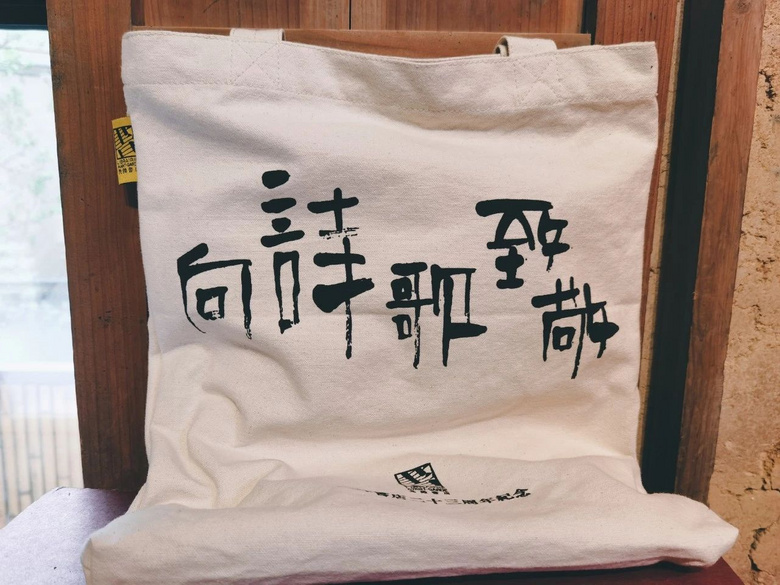 向詩歌致敬
書店二十三周年紀念